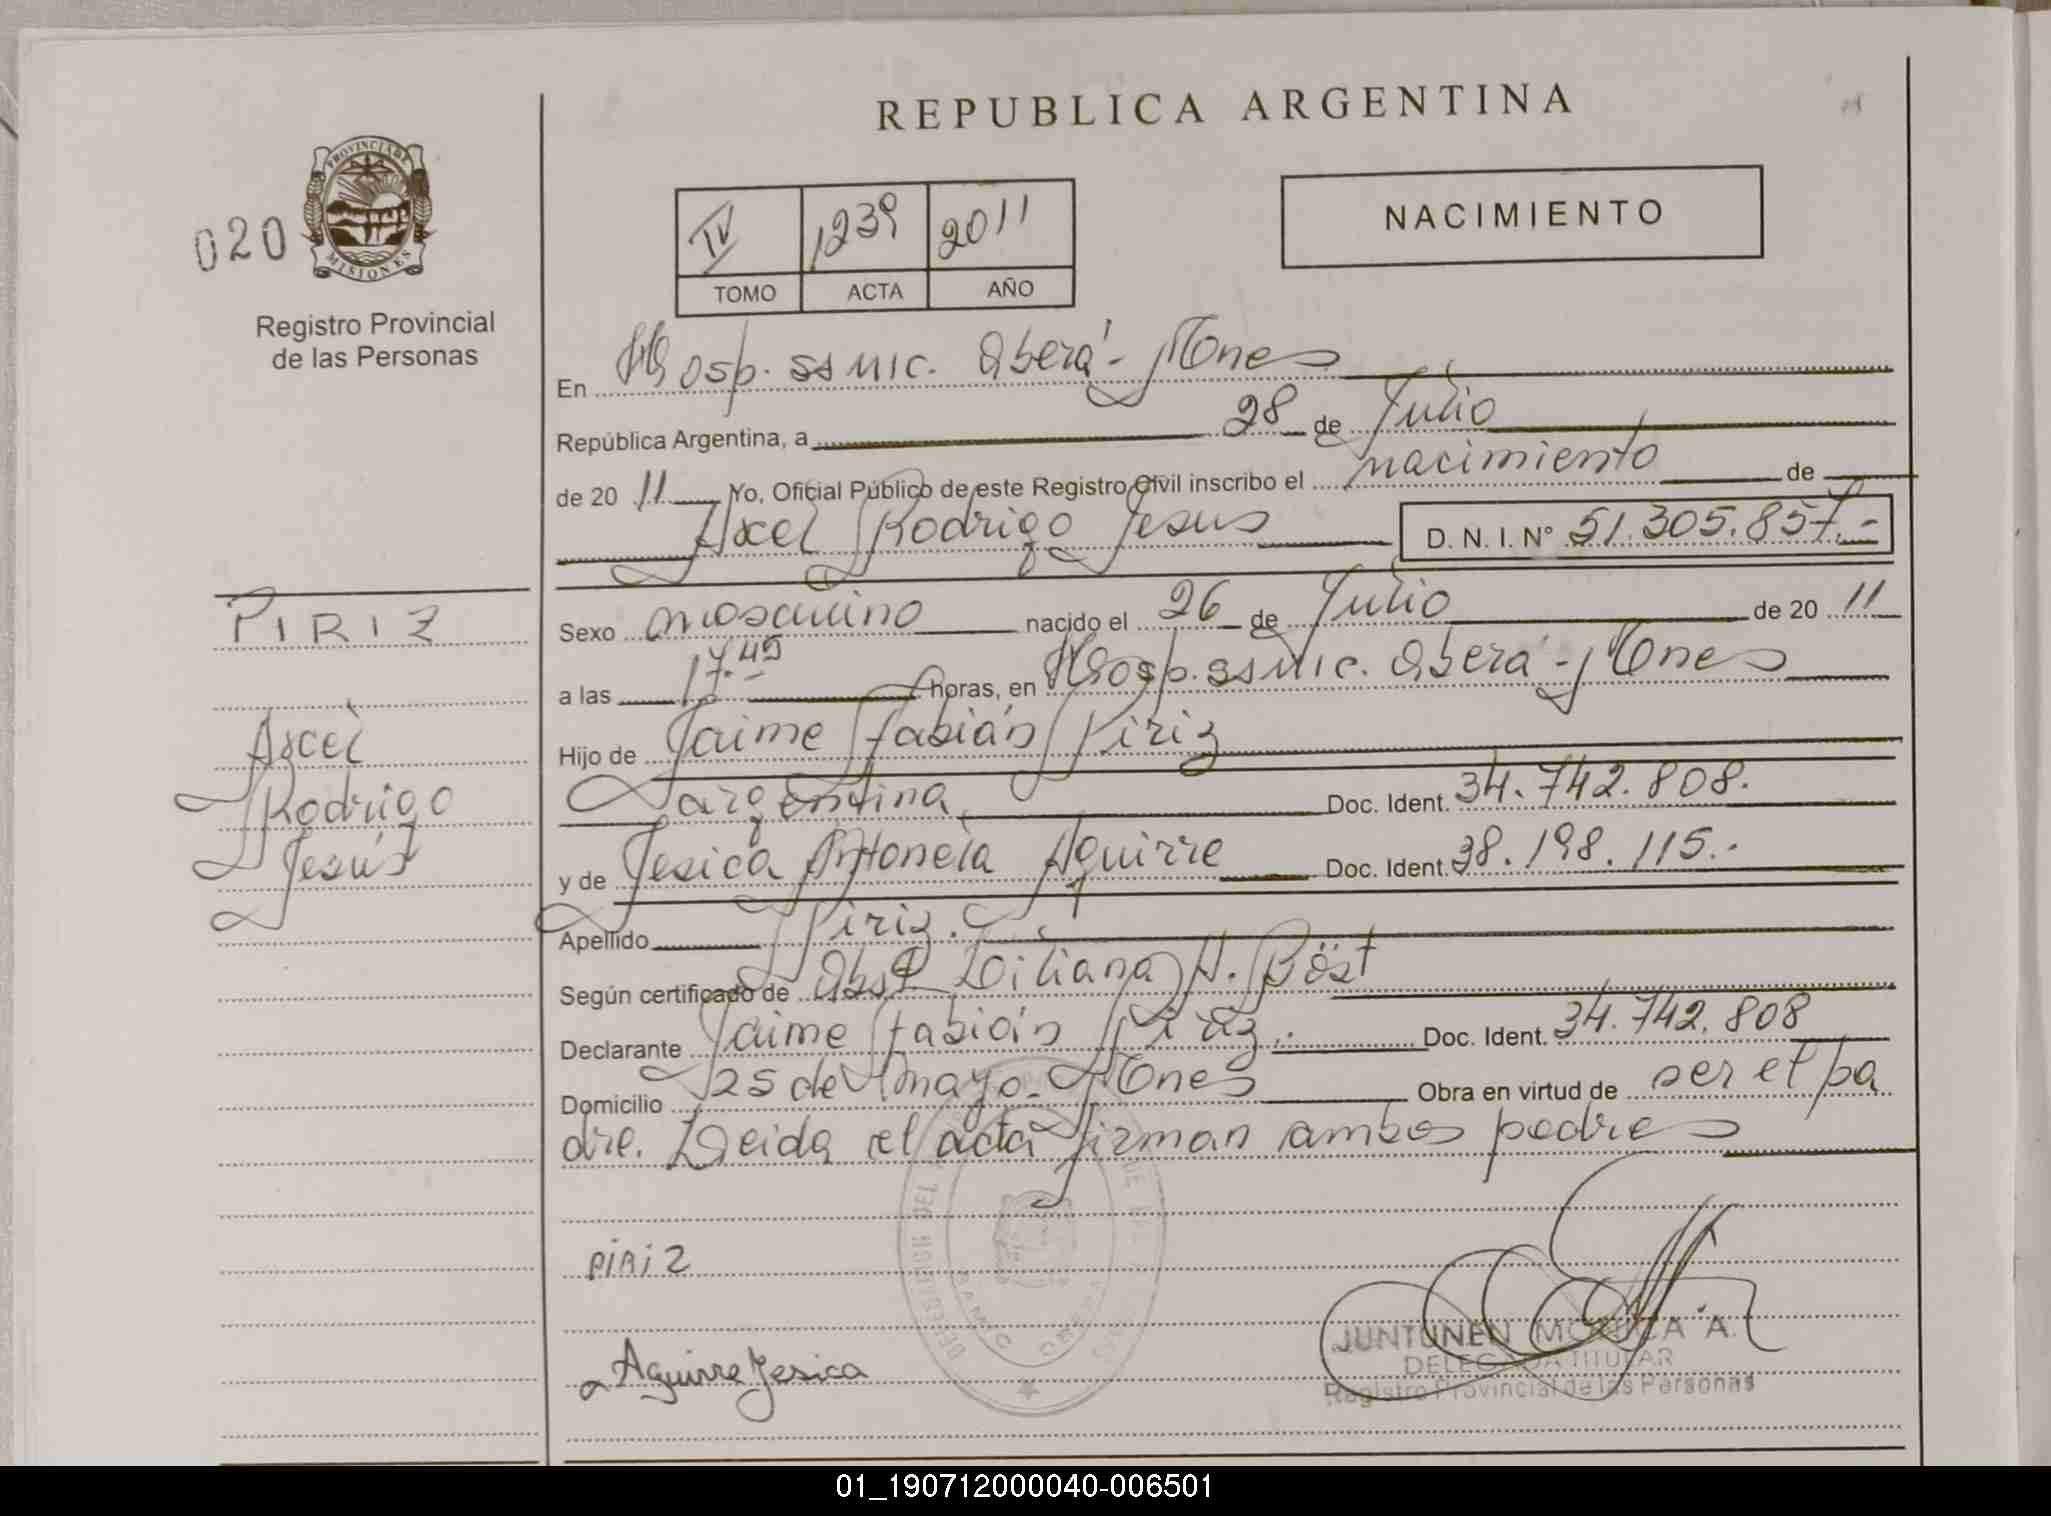 REPUBLICA ARGENTINA
020
PROVINCIA DE
MISIONES
Registro Provincial
de las Personas
IV 1239 2011
TOMO ACTA AÑO
NACIMIENTO
En Hosp. ssmic. Oberá - Mnes
República Argentina, a 28 de Julio
de 20 11 Yo, Oficial Público de este Registro Civil inscribo el nacimiento de
Axel Rodrigo Jesus D. N. I. N° 51.305.857.-
PIRIZ
Axel
Rodrigo
Jesús
Sexo masculino nacido el 26 de Julio de 20 11
a las 17.45 horas, en Hosp. ssmic. Oberá - Mnes
Hijo de Jaime Fabián Piriz
argentina Doc. Ident. 34.742.808.
y de Jesica Antonela Aguirre Doc. Ident. 38.198.115.-
Apellido Piriz.
Según certificado de Obst. Liliana H. Böst
Declarante Jaime Fabián Piriz. Doc. Ident. 34.742.808
Domicilio 25 de Mayo - Mnes Obra en virtud de ser el pa
dre. Leida el acta firman ambos padres
PIRIZ
Aguirre Jesica
JUNTUNEN MONICA A.
DELEGADA TITULAR
Registro Provincial de las Personas
01_190712000040-006501